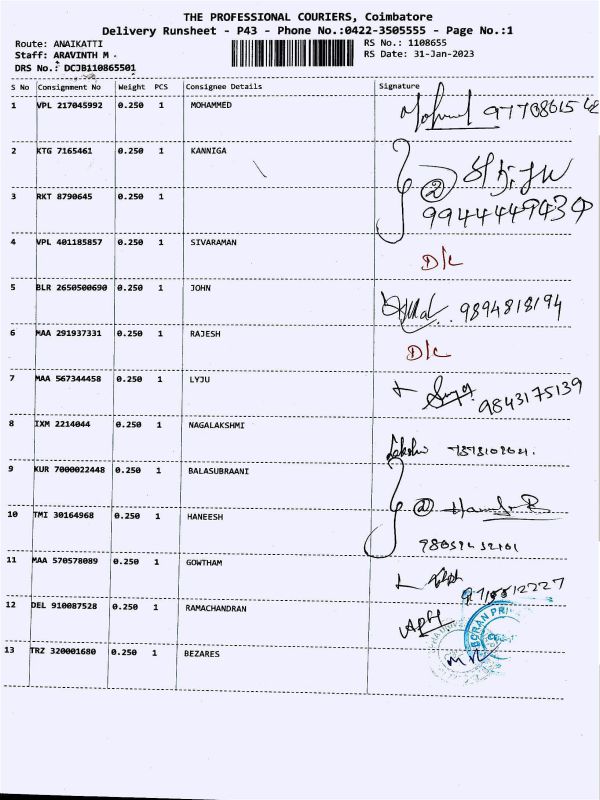 THE PROFESSIONAL COURIERS, Coimbatore
Delivery Runsheet - P43 - Phone No.:0422-3505555 - Page No.:1
Route: ANAIKATTI RS No.: 1108655
Staff: ARAVINTH M . RS Date: 31-Jan-2023
DRS No.: DCJB110865501
S No Consignment No Weight PCS Consignee Details Signature
1 VPL 217045992 0.250 1 MOHAMMED
2 KTG 7165461 0.250 1 KANNIGA
3 RKT 8790645 0.250 1
4 VPL 401185857 0.250 1 SIVARAMAN D/L
5 BLR 2650500690 0.250 1 JOHN 9894818194
6 MAA 291937331 0.250 1 RAJESH D/L
7 MAA 567344458 0.250 1 LYJU 9843175139
8 IXM 2214044 0.250 1 NAGALAKSHMI
9 KUR 7000022448 0.250 1 BALASUBRAANI
10 TMI 30164968 0.250 1 HANEESH
11 MAA 570578089 0.250 1 GOWTHAM
12 DEL 910087528 0.250 1 RAMACHANDRAN
13 TRZ 320001680 0.250 1 BEZARES